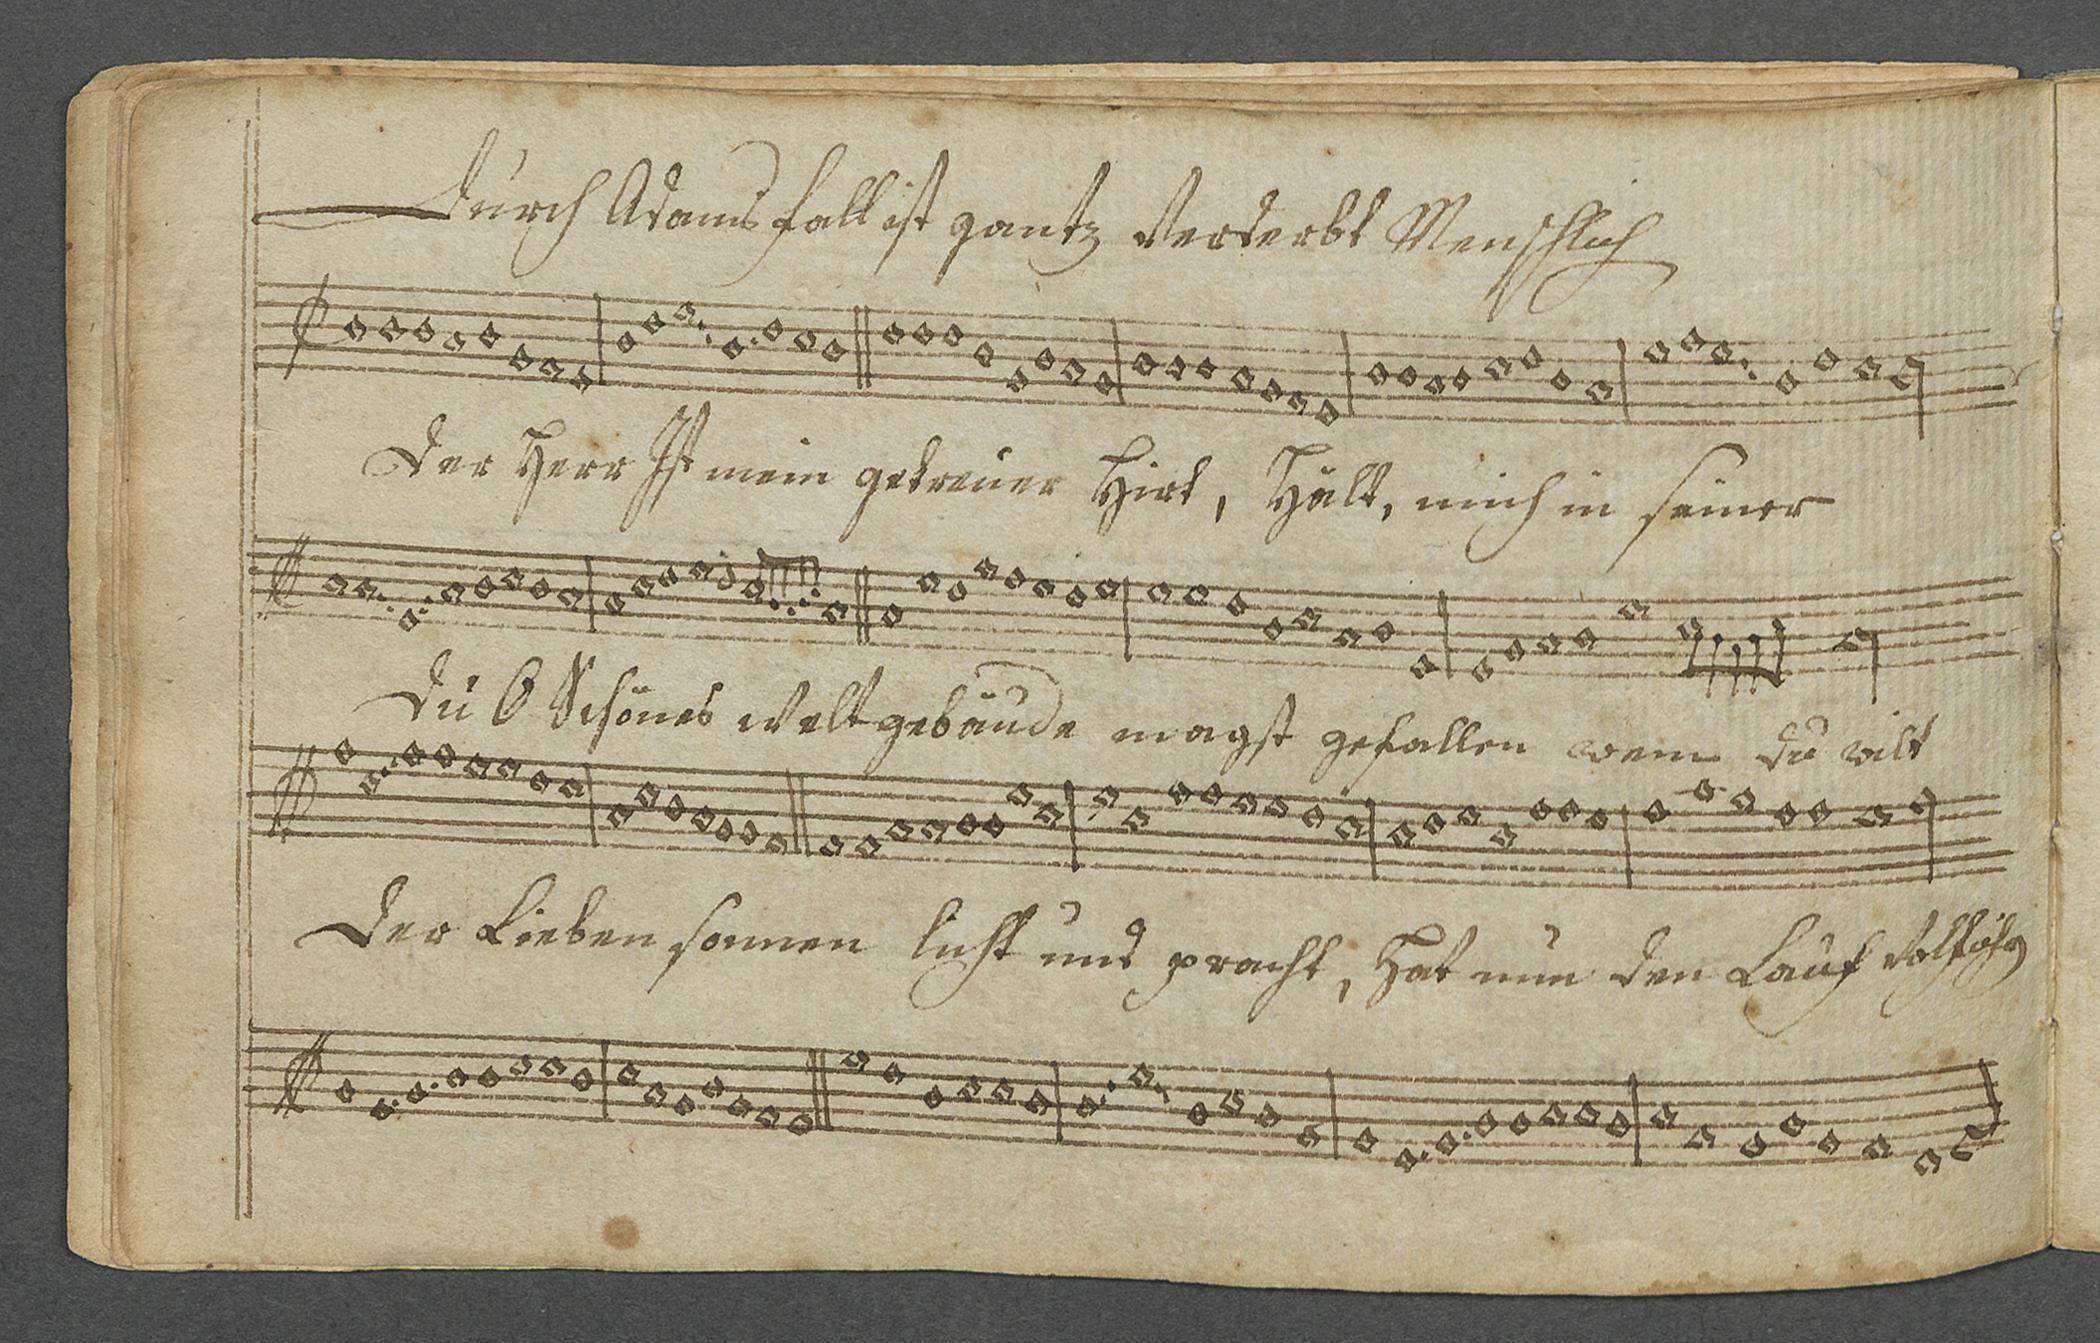 Durch Adams fall ist gantz Verderbt Menschlich
Der Herr Ist mein getreuer Hirt, Hält, mich in seiner
Du O Schönes weltgebäude magst gefallen wem du wilt
Der Lieben sonnen licht und pracht, Hat nun den Lauf